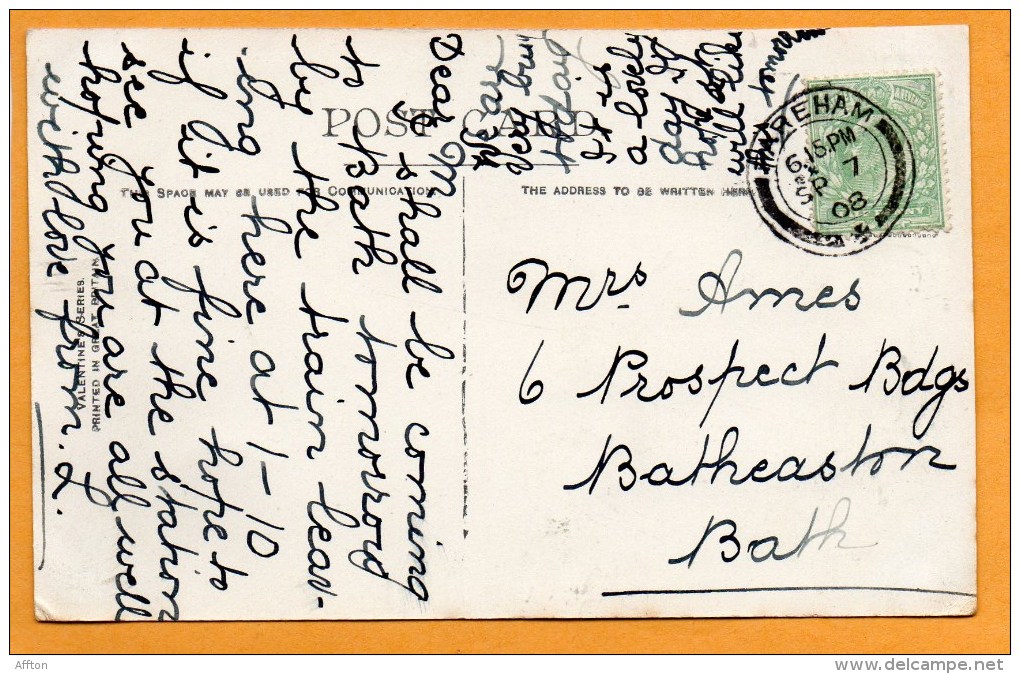 POST CARD
THIS SPACE MAY BE USED FOR COMMUNICATION.
THE ADDRESS TO BE WRITTEN HERE
VALENTINE'S SERIES.
PRINTED IN GREAT BRITAIN
Dear M
I shall be coming
to Bath tomorrow
by the train leav-
ing here at 1-10
if it is fine hope to
see you at the station
hoping you are all well
with love from. L.
today
It is
a lovely
day if
hold out
will like
tomorrow
WAREHAM
6.15 PM
SP 7
08
Mrs Ames
6 Prospect Bdgs
Batheaston
Bath
Affton
delcampe.net